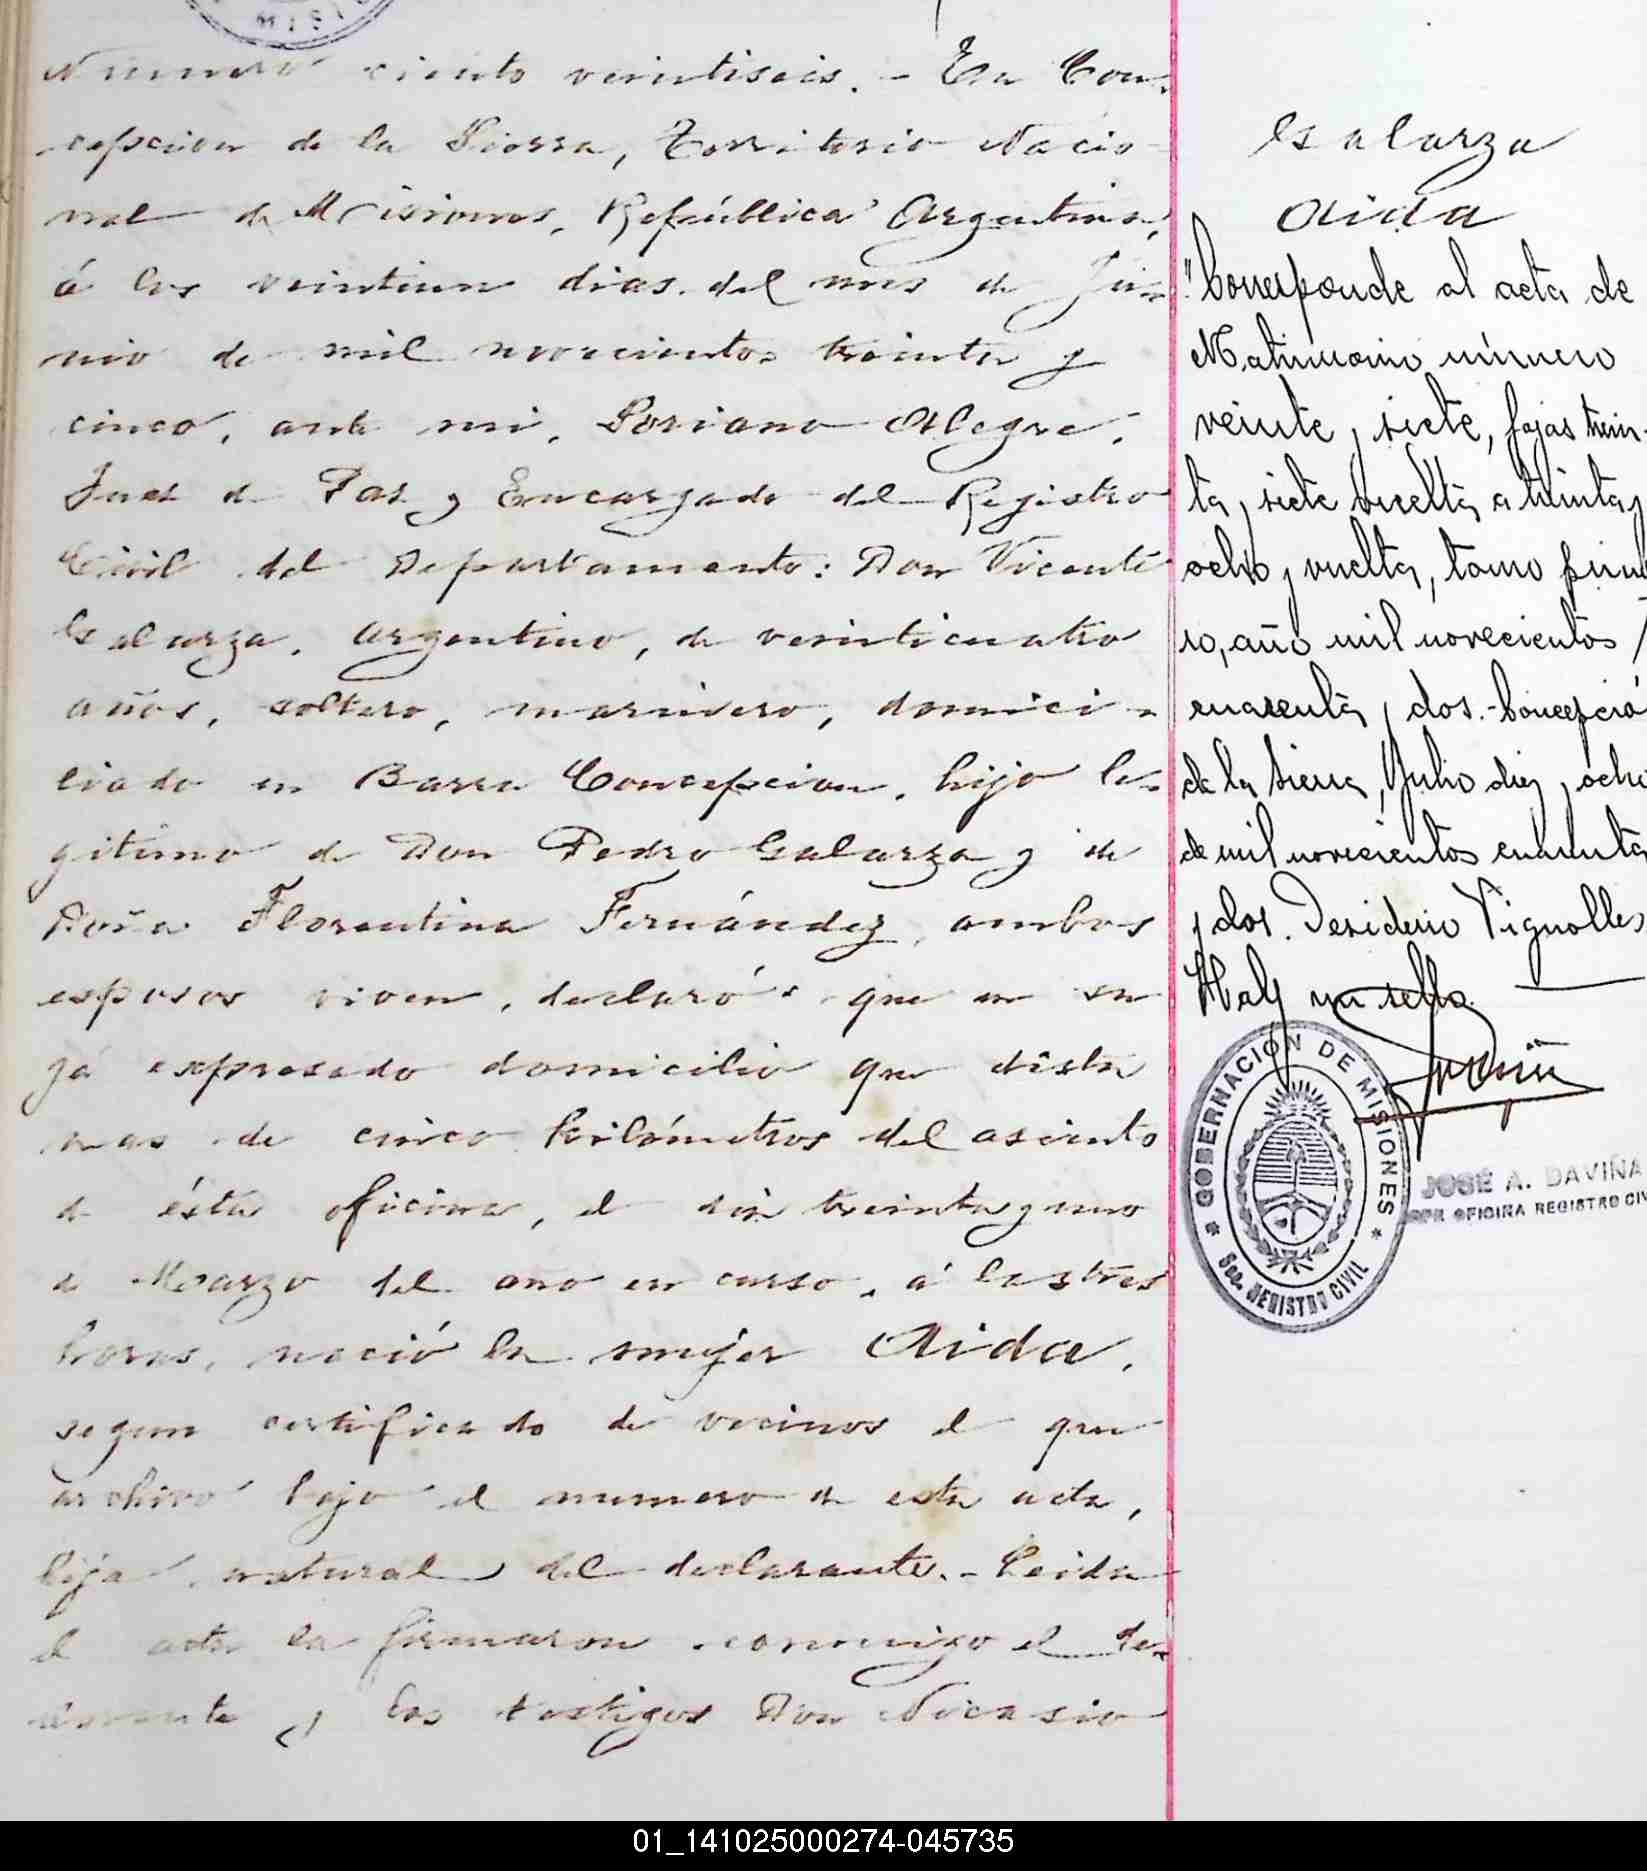 MISIO
Número ciento veintiseis. - En Con-
cepcion de la Sierra, Territorio Nacio-
nal de Misiones, República Argentina,
á los veintiun dias del mes de Ju-
nio de mil novecientos treinta y
cinco, ante mi, Soriano Alegre,
Juez de Paz y Encargado del Registro
Civil del Departamento: Don Vicente
Galarza, argentino, de veinticuatro
años, soltero, marinero, domici-
liado en Barra Concepcion, hijo le-
gitimo de Don Pedro Galarza y de
Doña Florentina Fernández, ambos
esposos viven, declaró: que en su
ya expresado domicilio que dista
mas de cinco kilómetros del asiento
de ésta oficina, el dia treinta y uno
de Marzo del año en curso, á las tres
horas, nació la mujer Aida,
segun certificado de vecinos el que
archivo bajo el numero de esta acta,
hija natural del declarante. - Leida
el acta la firmaron conmigo el de-
clarante y los testigos Don Nicasio
Galarza
Aida
"Corresponde al acta de
Matrimonio número
veinte y siete, fojas trein-
ta y siete vuelta a treinta y
ocho y vuelta, tomo prime
ro, año mil novecientos
cuarenta y dos.- Concepció
de la Sierra, Julio diez y ocho
de mil novecientos cuarenta
y dos. Desiderio Vignolles
Hay un sello
GOBERNACIÓN DE MISIONES
Sec. REGISTRO CIVIL
JOSÉ A. DAVIÑA
OFICINA REGISTRO CIV
01_141025000274-045735